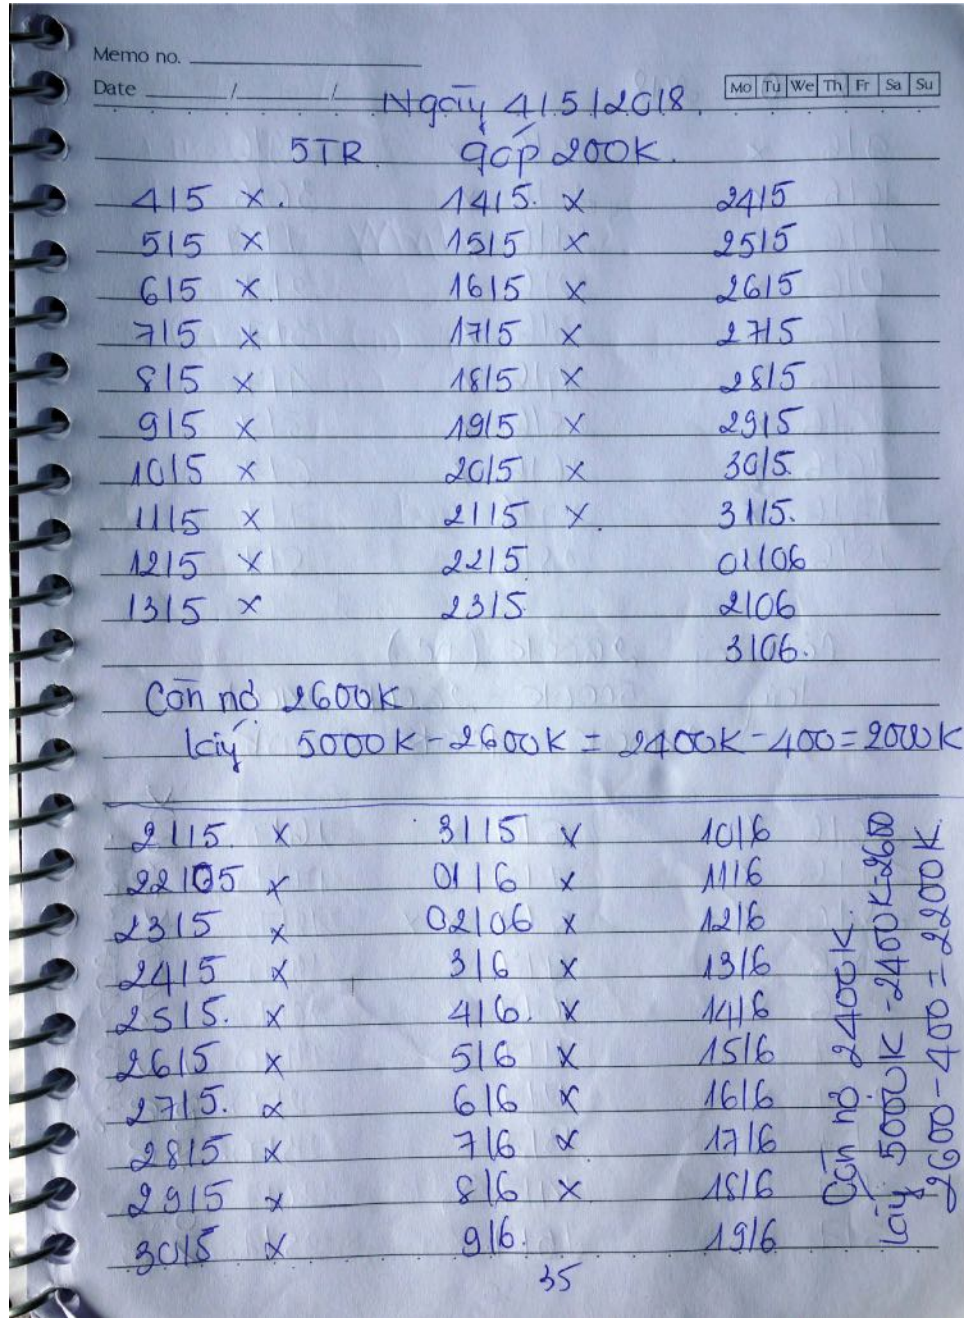 Memo no.
Date / /
Mo Tu We Th Fr Sa Su
Ngày 4/5/2018.
5TR góp 200K.
4/5 x. 14/5. x 24/5
5/5 x 15/5 x 25/5
6/5 x 16/5 x 26/5
7/5 x 17/5 x 27/5
8/5 x 18/5 x 28/5
9/5 x 19/5 x 29/5
10/5 x 20/5 x 30/5.
11/5 x 21/5 x. 31/5.
12/5 x 22/5 01/06
13/5 x 23/5 2/06
3/06.
Còn nợ 2600K
lấy 5000K-2600K = 2400K-400=2000K
21/5. x 31/5 x 10/6
22/05 x 01/6 x 11/6
23/5 x 02/06 x 12/6
24/5 x 3/6 x 13/6
25/5. x 4/6. x 14/6
26/5 x 5/6 x 15/6
27/5. x 6/6 x 16/6
28/5 x 7/6 x 17/6
29/5 x 8/6 x 18/6
30/5 x 9/6. 19/6
Còn nợ 2400K.
lấy 5000K-2400K=2600
2600-400=2200K.
35